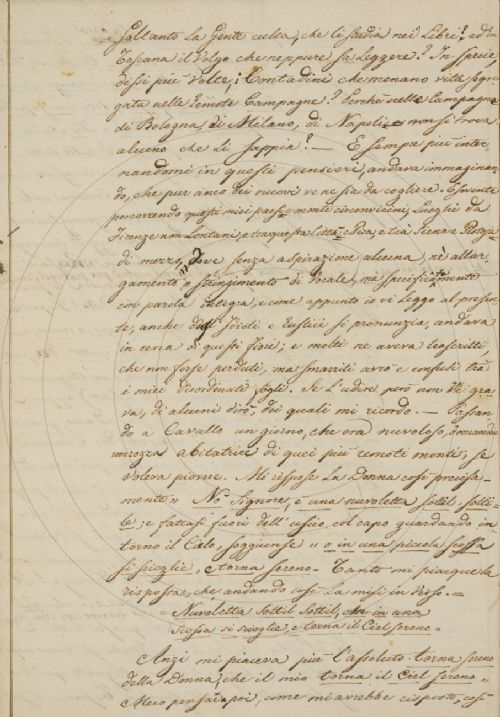 soltanto la Gente culta, che li studia nei Libri? ed in
Toscana il Volgo che neppure sa Leggere? In specie
dissi più volte, i Contadini che menano vita segre-
gata nelle remote Campagne? Perchè nelle Campagne
di Bologna, di Milano, di Napoli non si trova
alcuno che li sappia? — E sempre più inter-
nandomi in questi pensieri, andava immaginan-
do, che pur anco dei nuovi ve ne sia da cogliere. E sovente
percorrendo questi miei paesi e monti circonvicini, Luoghi da
Firenze non lontani, e tra questa Città e Pisa, e tra Siena e
di mezzo, ove senza aspirazione alcuna, nè allar-
gamento o stringimento di vocale, ma
con parola integra, e come appunto io vi Leggo al presen-
te, anche dagl' Idioti e Rustici si pronunzia, andava
in cerca di questi fiori; e molti ne aveva trascritti,
che non forse perduti, ma smarriti avrò e confusi trà
i miei disordinati fogli. Se l'udire però non vi gra-
va, di alcuni dirò, dei quali mi ricordo. — Passan-
do a Cavallo un giorno, che era nuvoloso, domandai
una rozza abitatrice di quei più remoti monti, se
voleva piovere. Mi rispose la Donna così precisa-
mente " No Signore, è una nuvoletta sottil sotti-
le; e fattasi fuori dell' uscio, col capo guardando in-
torno il Cielo, soggiunse " o in una piccola scossa
si scioglie, e torna sereno - Tanto mi piacque la
risposta, che andando così la misi in verso. =
= Nuvoletta sottil sottil, che in una
scossa si scioglie e torna il Ciel sereno =
Anzi mi piaceva più l'assoluto torna sereno
della Donna, che il mio torna il Ciel sereno =
pensai poi, come mi avrebbe risposto, così